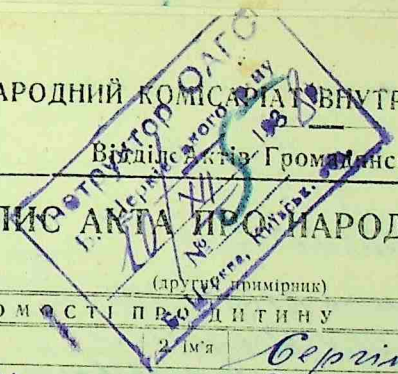 АРОДНИЙ КОМІСАРІАТ ВНУТР
Відділ Актів Громадянс
ПИС АКТА ПРО НАРОД
(другий примірник)
ОМОСТІ ПРО ДИТИНУ
2 ім'я Сергій
Інструктор ОАГС
10/XII 1938
№